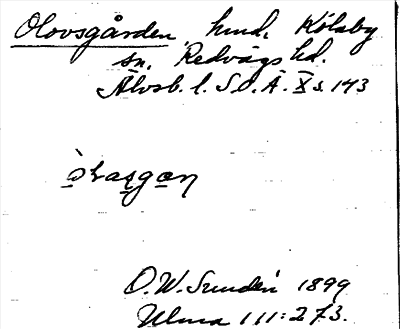 Olovsgården, hmd, Kölaby
sn. Redvägs hd.
Älvsb. l. S.O.Ä. X s. 143
O.W. Sundén 1899
Ulma 111:273.